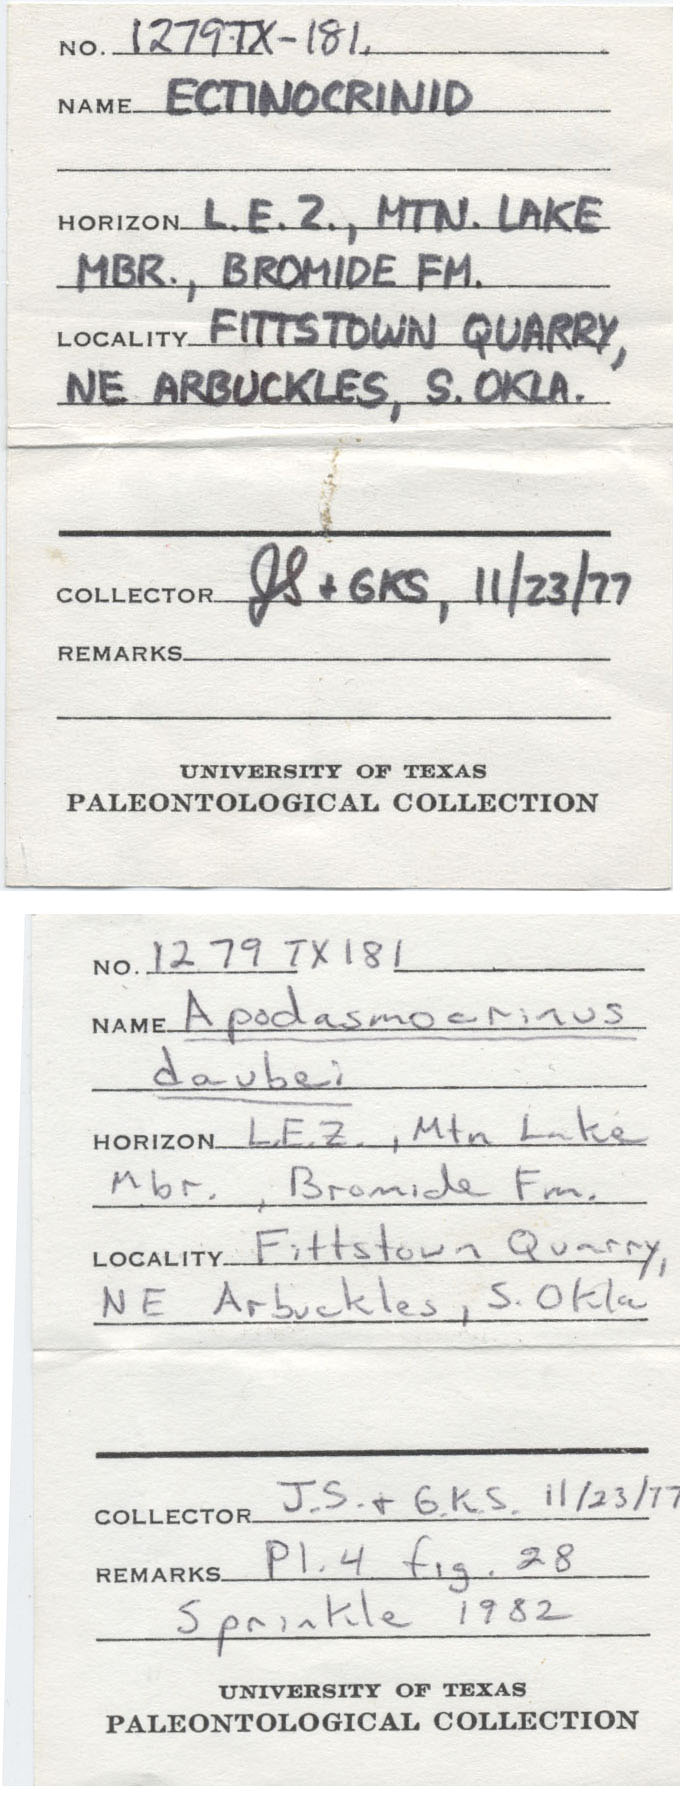 NO. 1279TX-181.
NAME ECTINOCRINID
HORIZON L.E.Z., MTN. LAKE
MBR., BROMIDE FM.
LOCALITY FITTSTOWN QUARRY,
NE ARBUCKLES, S. OKLA.
COLLECTOR JS + GKS, 11/23/77
REMARKS
UNIVERSITY OF TEXAS
PALEONTOLOGICAL COLLECTION
NO. 1279 TX181
NAME Apodasmocrinus
daubei
HORIZON L.E.Z., Mtn Lake
Mbr., Bromide Fm.
LOCALITY Fittstown Quarry,
NE Arbuckles, S. Okla
COLLECTOR J.S. + G.K.S. 11/23/77
REMARKS Pl. 4 fig. 28
Sprinkle 1982
UNIVERSITY OF TEXAS
PALEONTOLOGICAL COLLECTION